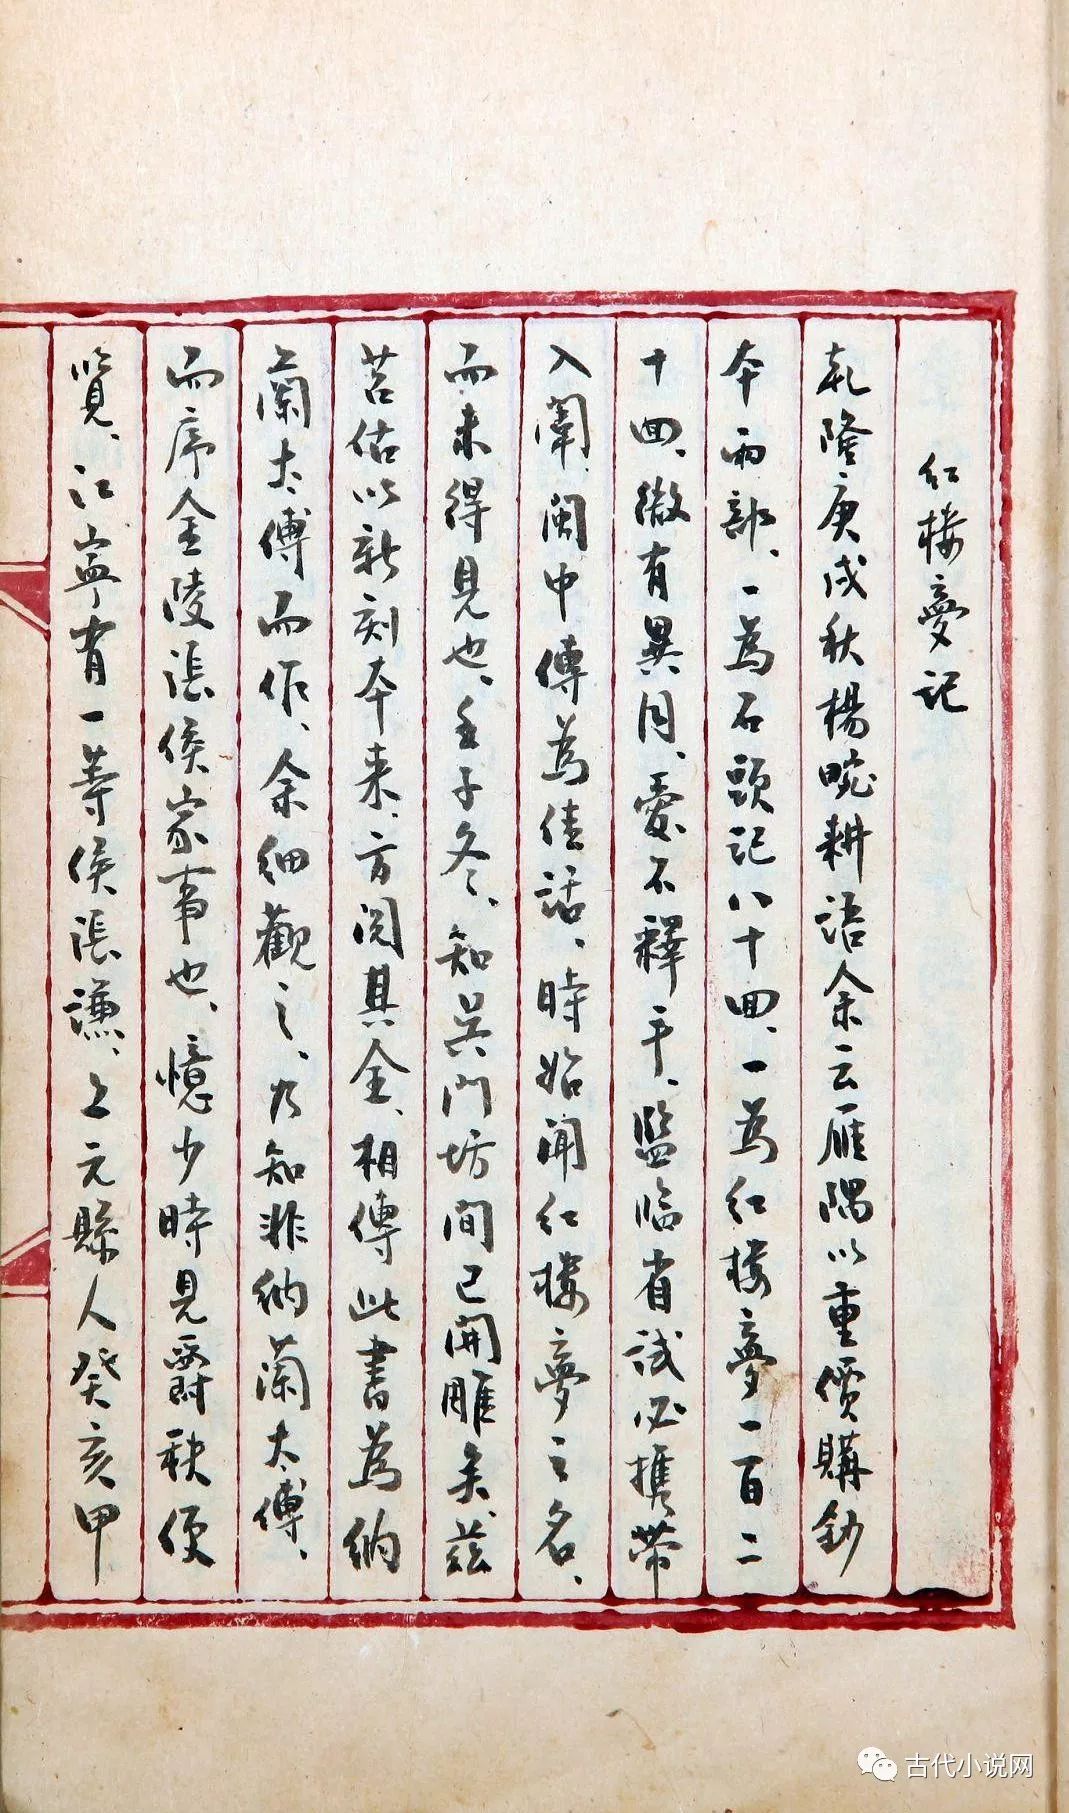 红楼夢记
乾隆庚戌秋楊畹耕語余云雁隅以重價購鈔
本兩部、一為石頭记八十囬、一為红楼夢一百二
十囬、微有異同、愛不釋手、監临省试必携带
入闈、闽中傳為佳話、時始闻红楼夢之名、
而未得見也、壬子冬、知吳门坊间已開雕矣、茲
苕估以新刻本来、方阅其全、相傳此書為納
蘭太傅而作、余细觀之、乃知非纳蘭太傅、
而序金陵張侯家事也、憶少時見爵秩便
覽、江寧有一等侯張謙、上元縣人癸亥甲
古代小说网